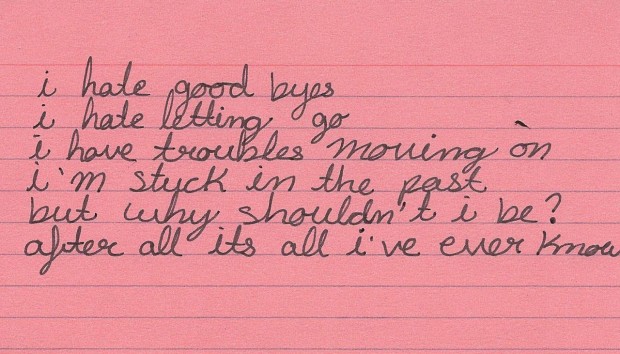 i hate good byes
i hate letting go
i have troubles moving on
i'm stuck in the past
but why shouldn't i be?
after all its all i've ever know